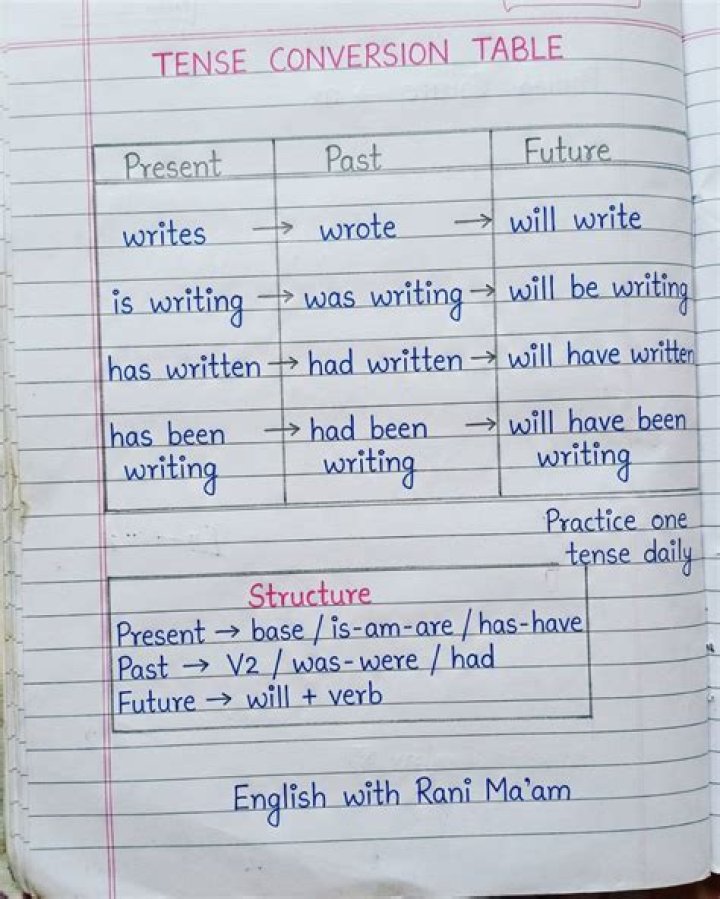 TENSE CONVERSION TABLE
Present Past Future
writes → wrote → will write
is writing → was writing → will be writing
has written → had written → will have written
has been → had been → will have been
writing writing writing
Practice one
tense daily
Structure
Present → base / is-am-are / has-have
Past → V2 / was-were / had
Future → will + verb
English with Rani Ma'am